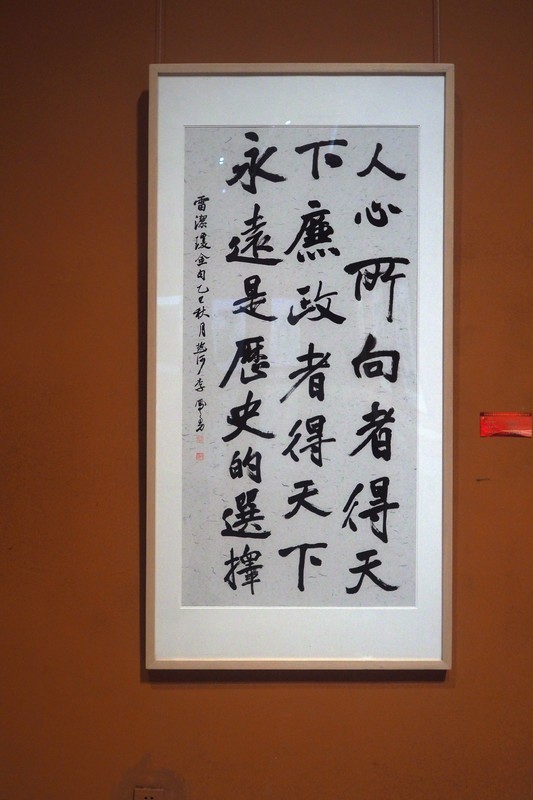 人心所向者得天
下廉政者得天下
永遠是歷史的選擇
雷潔瓊金句乙巳秋月熱河李